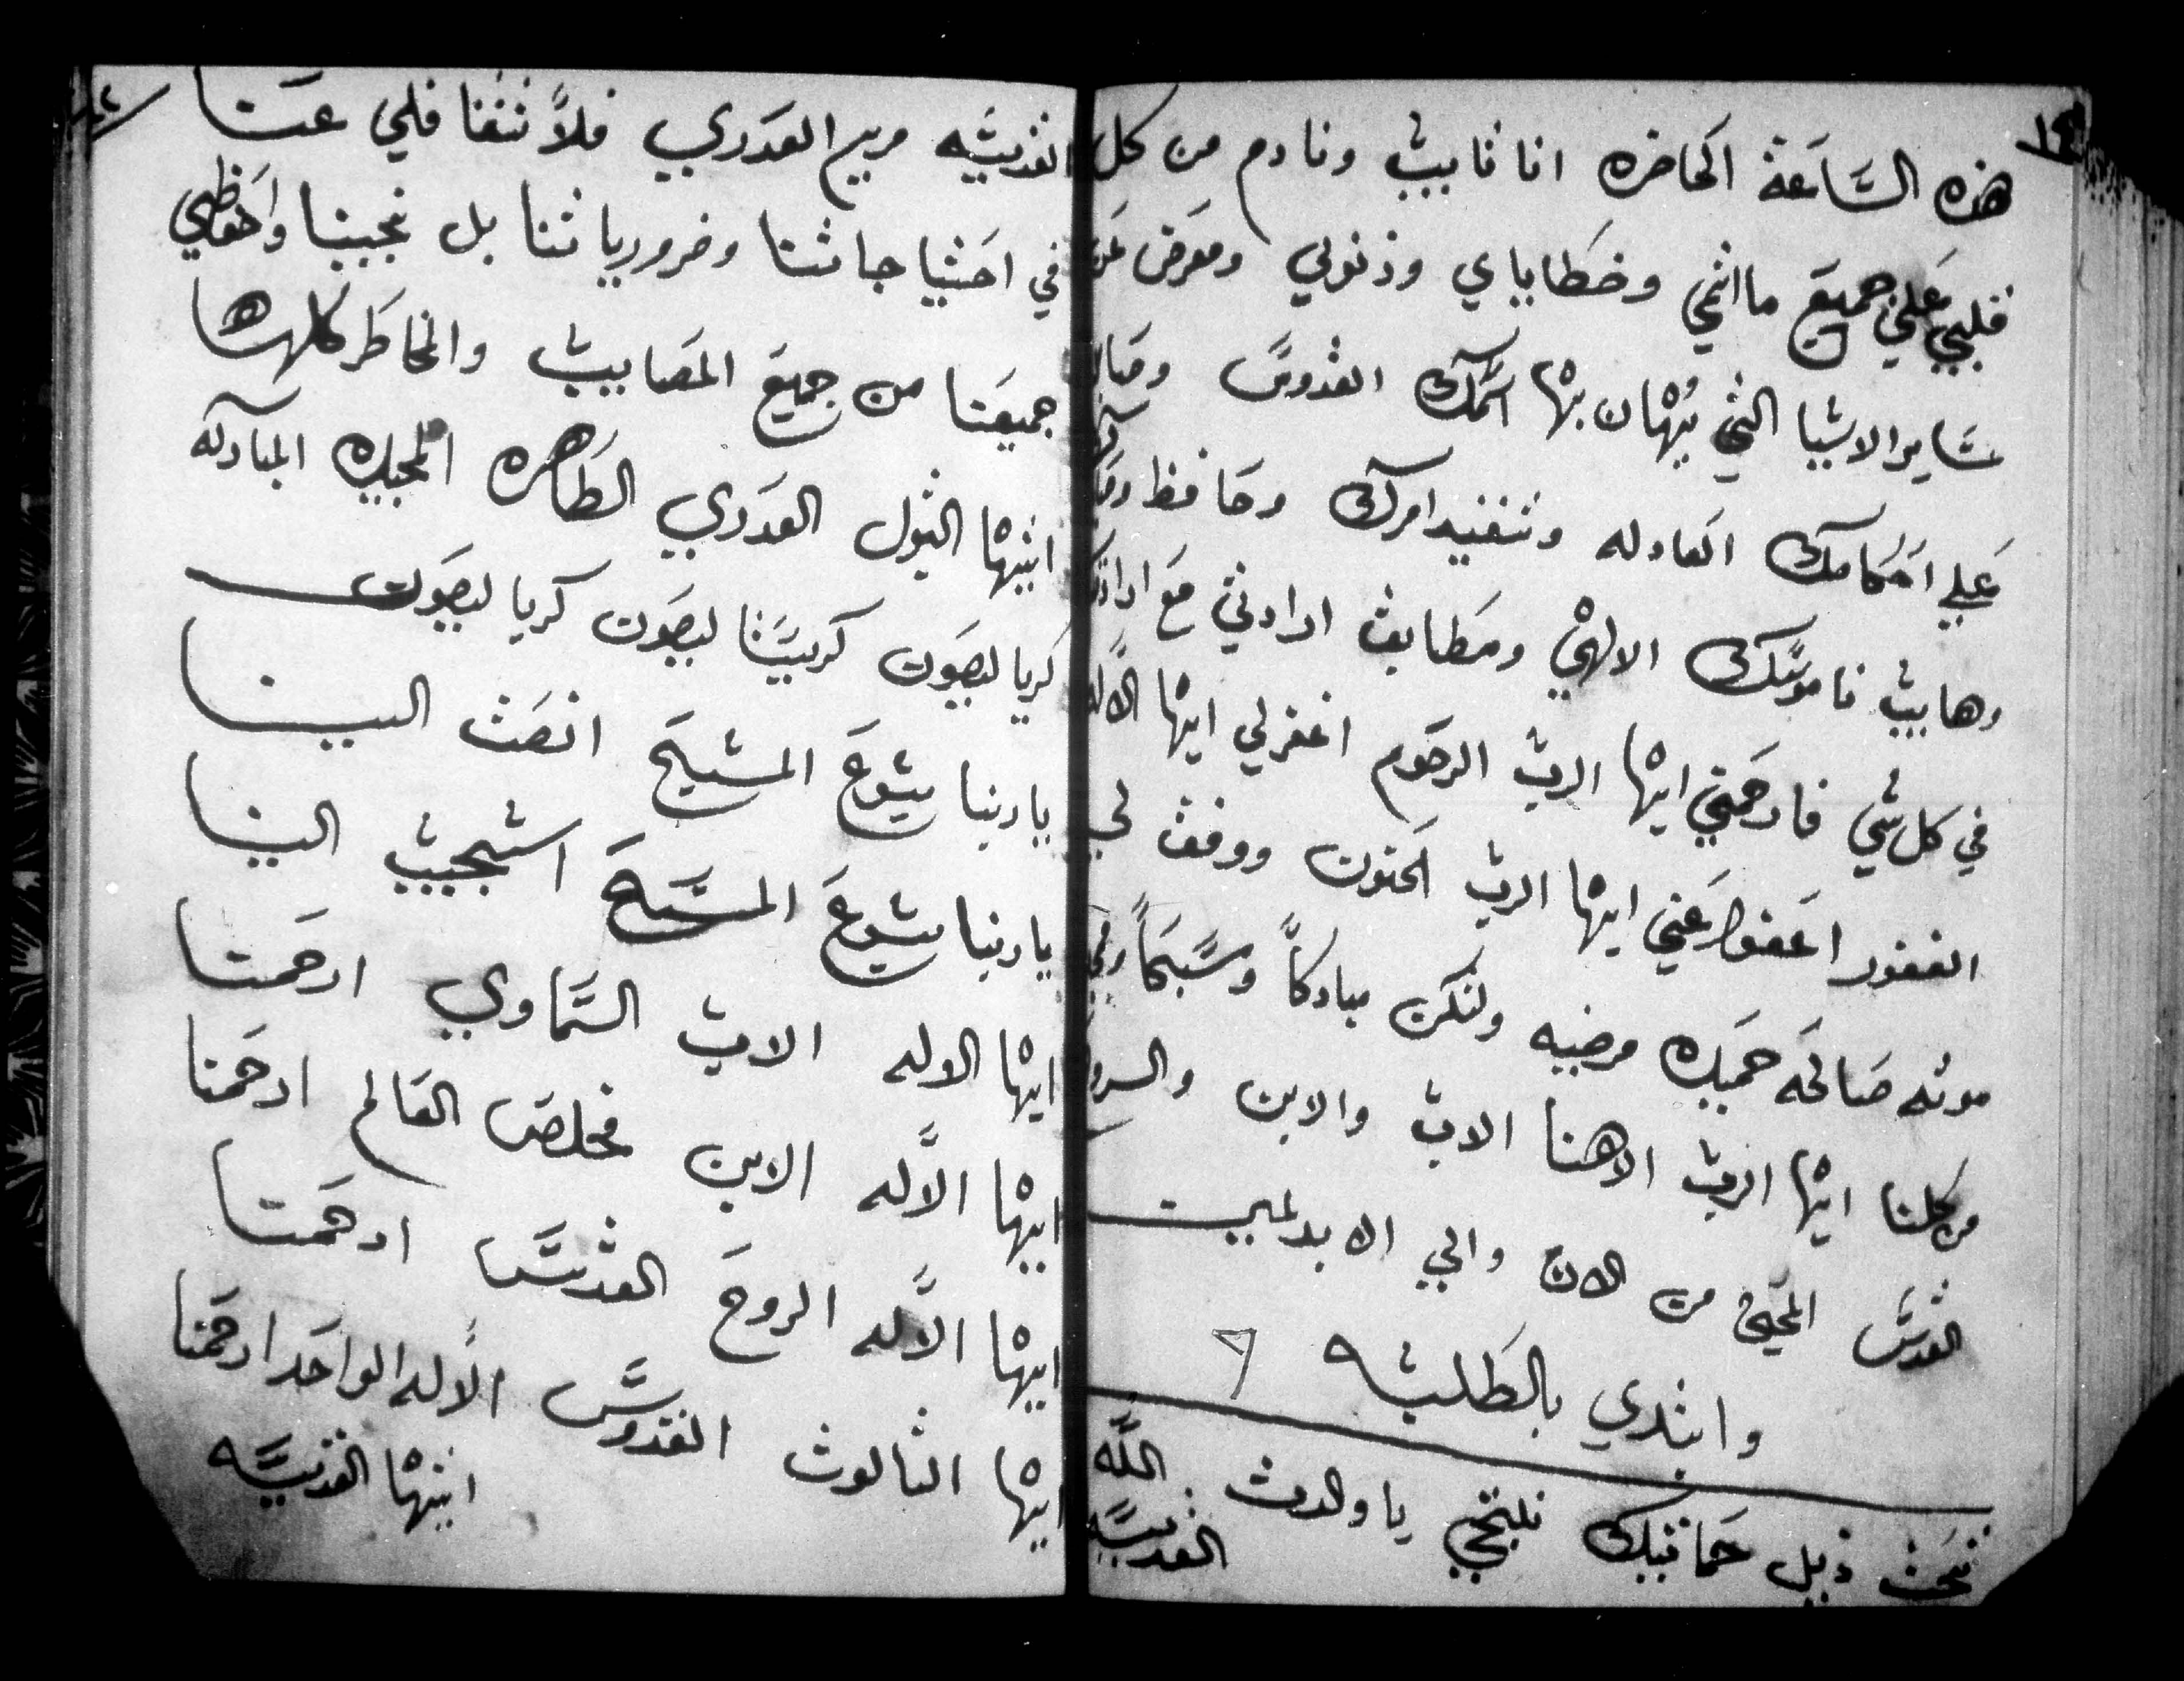 هذه السَّاعَة الحَاضره انا ثابيب ونادم من كل
قلبي علي جميع ما اثمي وخطاياي وذنوبي ومعرض عن
سَاير الاشيا التي يُهان بها اسمك القدوس
علي احكامك العادله وتنفيد امرك وحافظ
وهايب ناموسَك الالهي ومطابق ارادتي مع ارادتك
في كل شي فارحمني ايها الرب الرحوم اغفرلي ايها الاله
الغفور اعفو عني ايها الرب الحنون ووفق لي
موته صالحَه حميده مرضيه ولتكن مباركاً ومسَبحاً
من كلنا ايها الرب الاهنا الاب والابن والروح
القدس المحيي من الان والي الابد امين
وابتدي بالطلبه
تحت ذيل حمايتك نلتجي يا والدت اللّه
القديسَه
القديسَه مريم العدري فلاً تتغافلي عنا
في احتياجاتنا وضرورياتنا بل نجينا واحفظي
جميعَنا من جميع المصايب والمخاطر كلها
ايتها البتول العدري الطاهره المجيده المباركه
كريا ليصون كريسَتا ليصون كريا ليصون
ياربنا يسَوع المسَيح انصت الينا
ياربنا يسَوع المسَيح استجيب الينا
ايها الاله الاب السَماوي ارحمنا
ايها الاله الابن مخلص العالم ارحمنا
ايها الاله الروح القدس ارحمنا
ايها الثالوث القدوس الاله الواحد ارحمنا
ايتها القديسَه